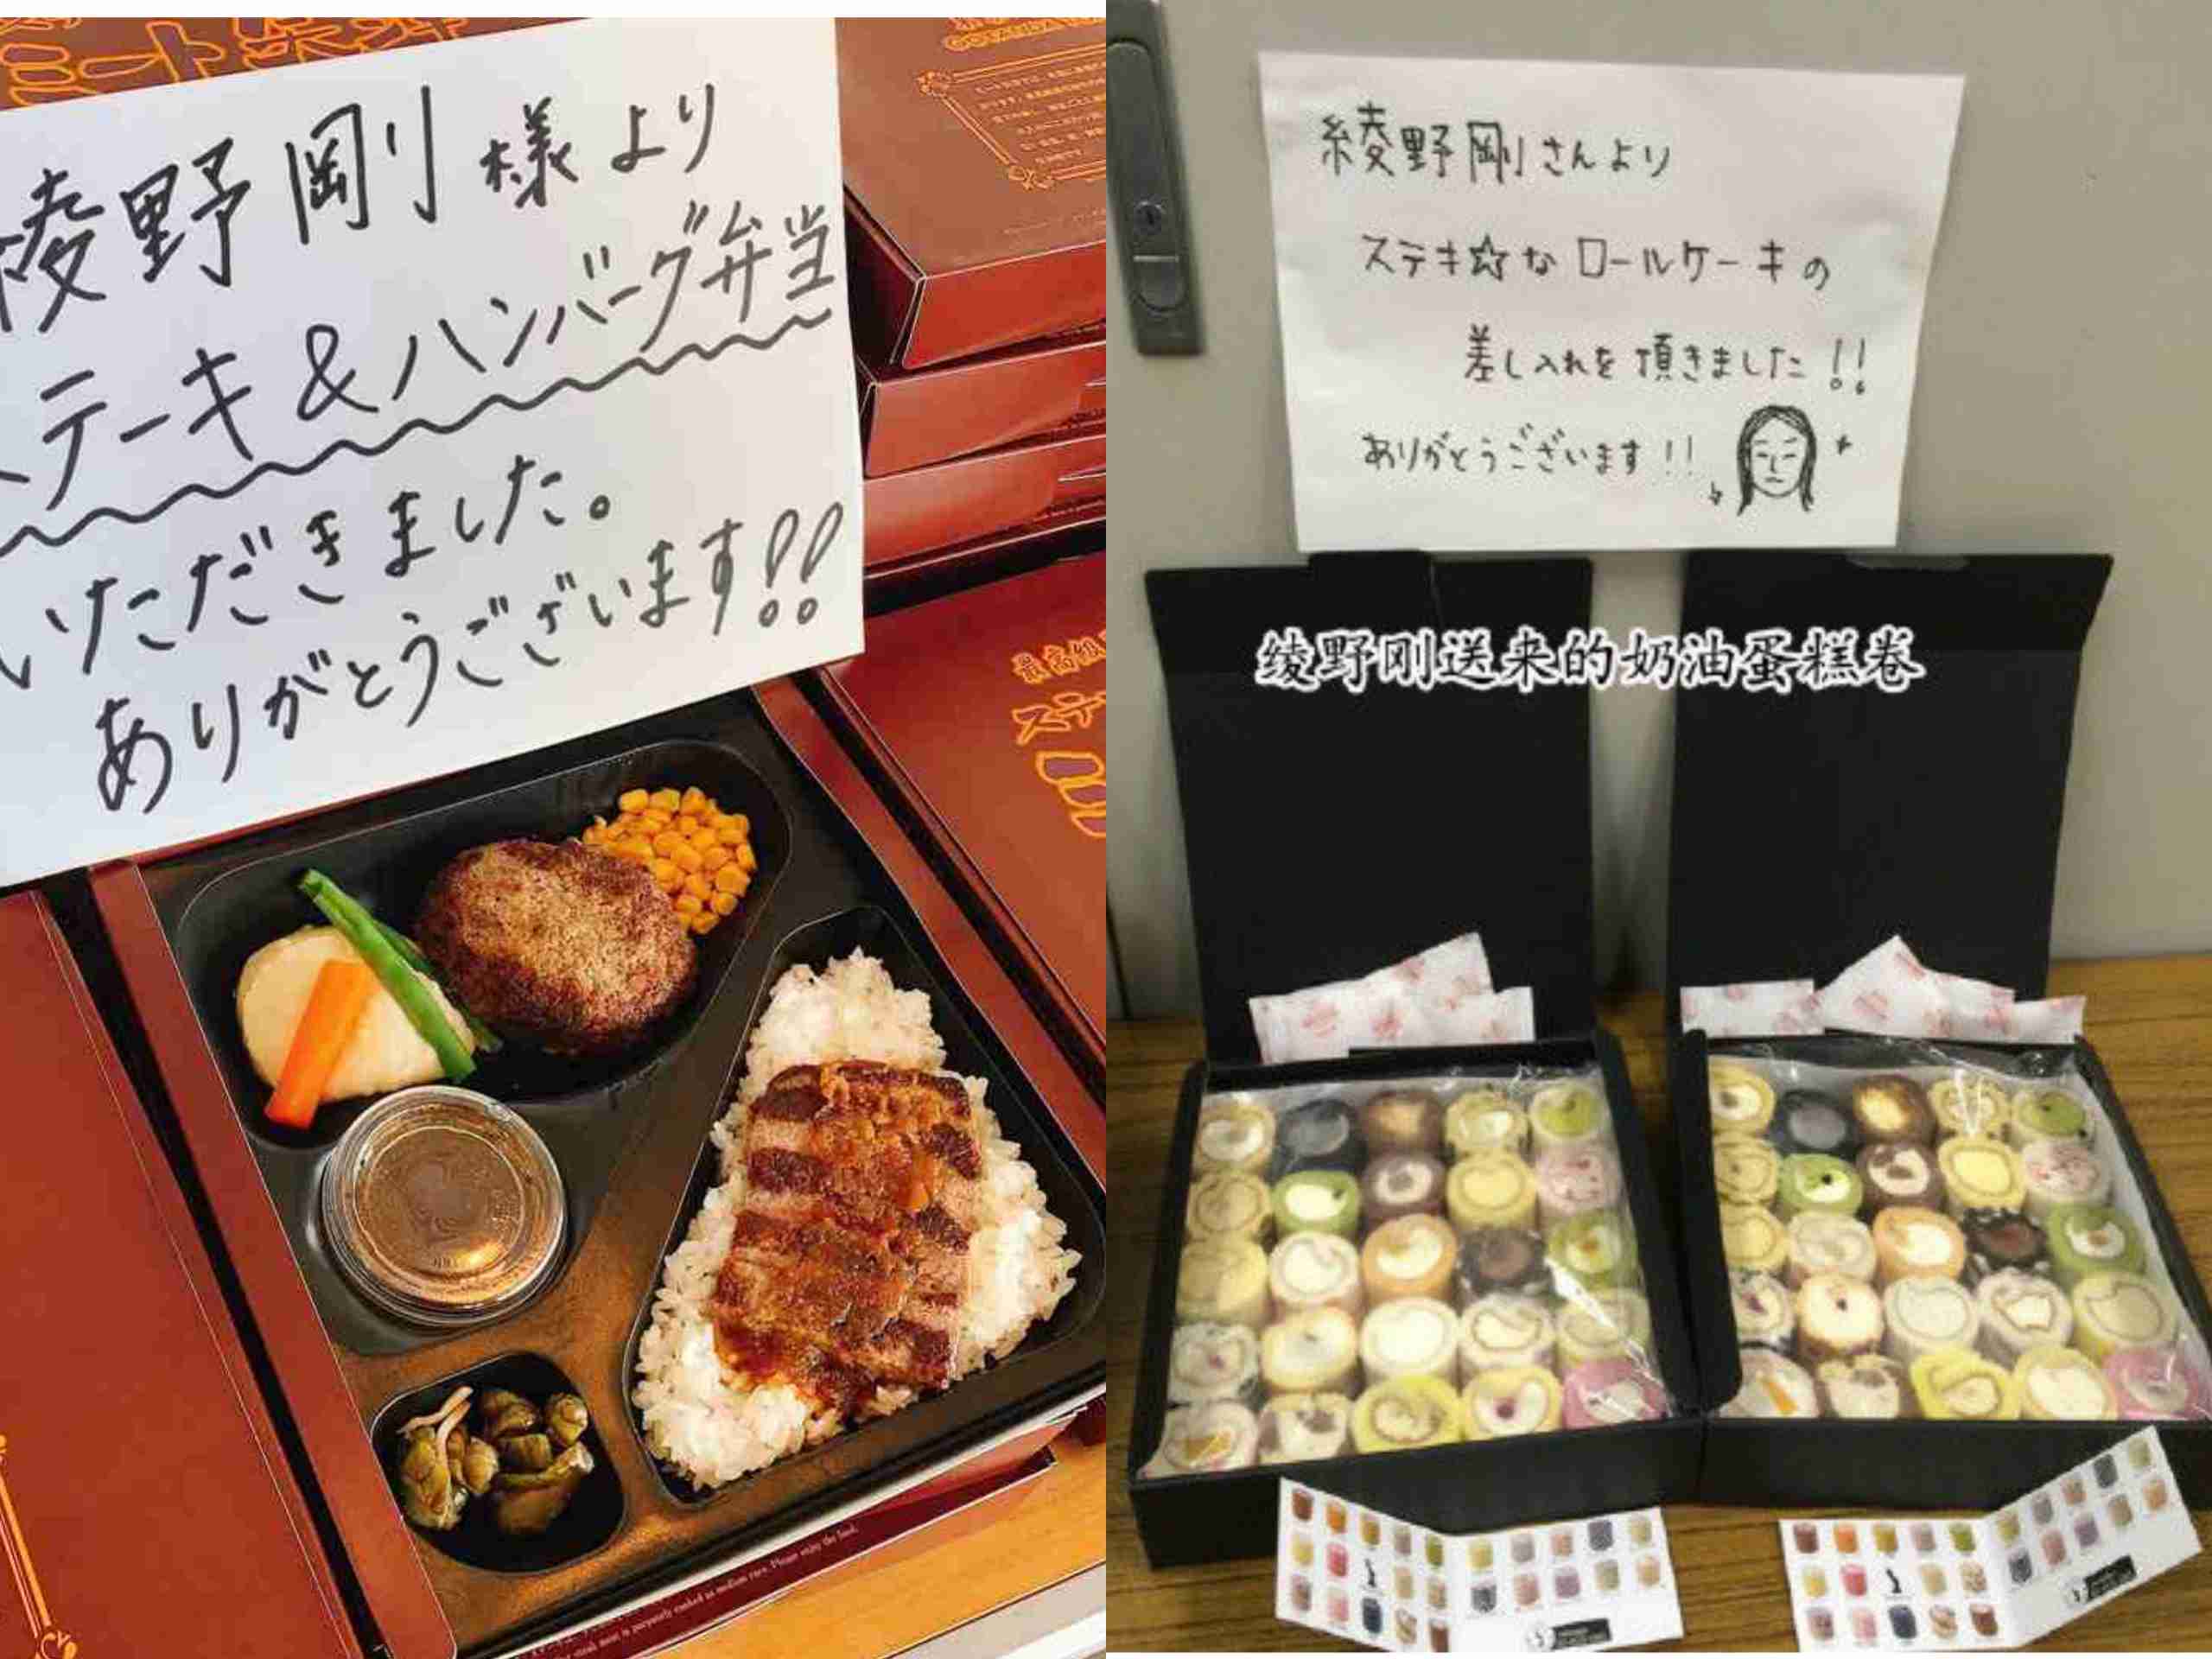 綾野剛様より
ステーキ&ハンバーグ弁当
いただきました。
ありがとうございます!!
最高級
ステ
Please enjoy the food.
綾野剛さんより
ステキ☆なロールケーキの
差し入れを頂きました!!
ありがとうございます!!
绫野刚送来的奶油蛋糕卷